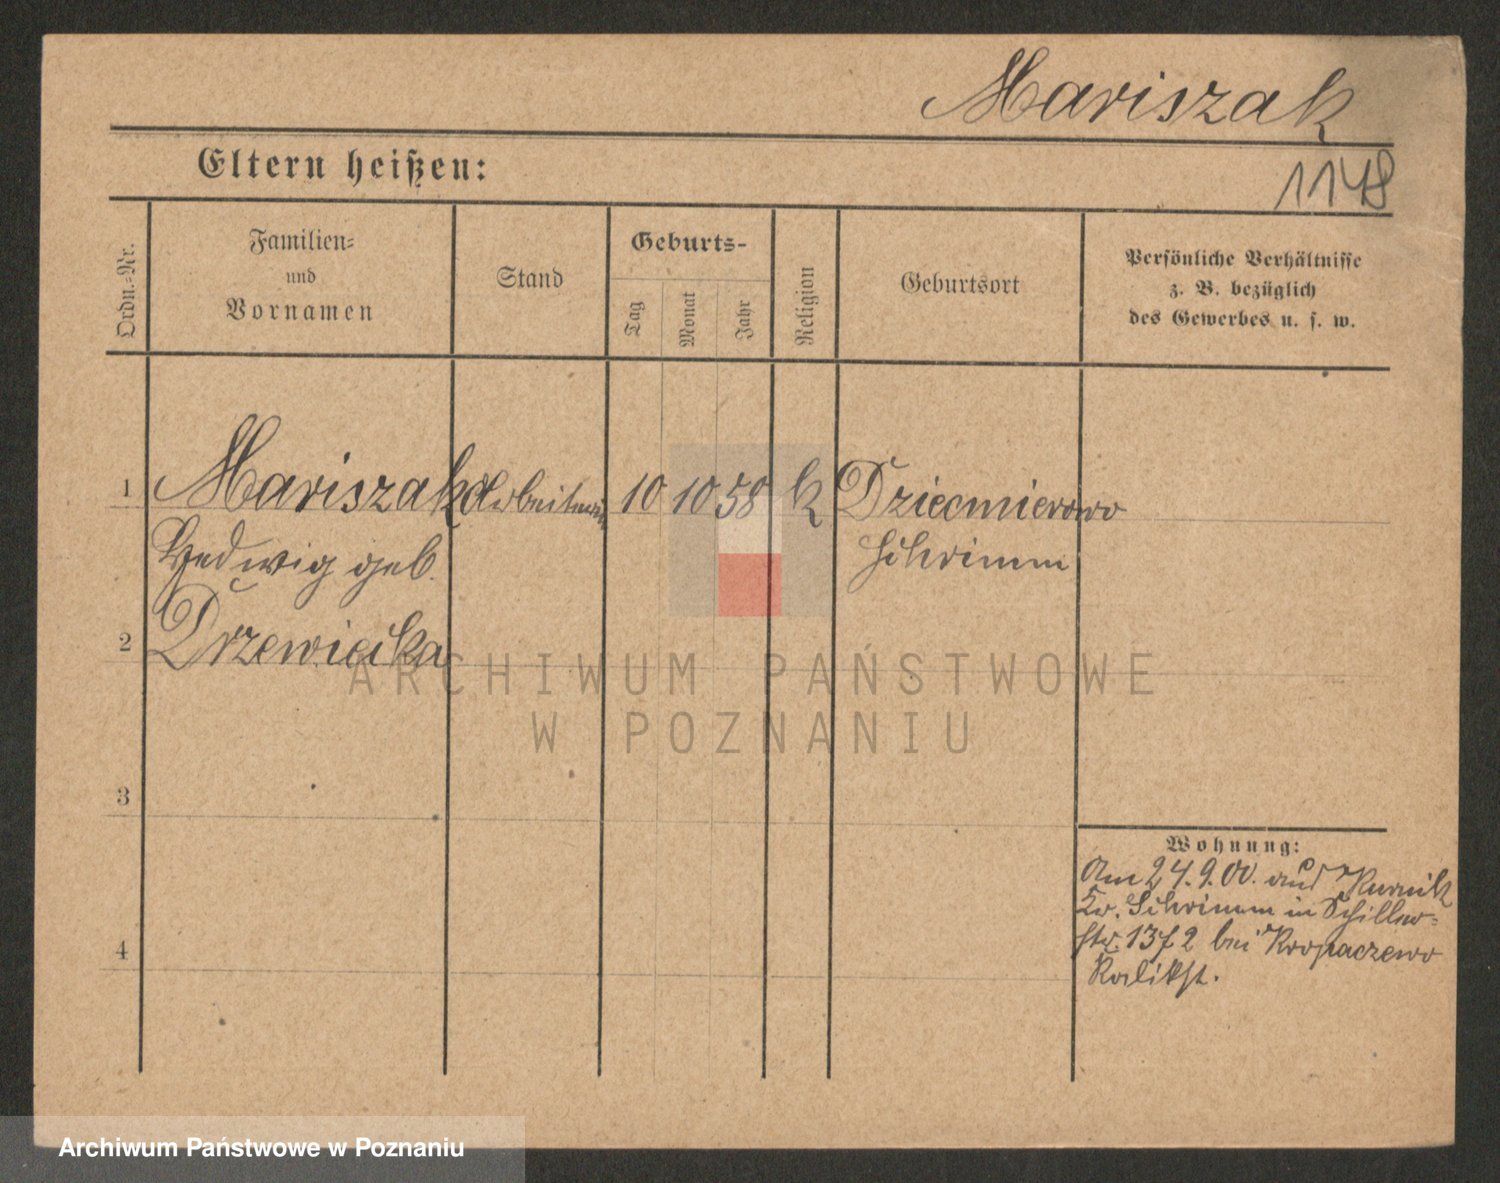 Mariszak
1148
Eltern heißen:
Ordn.-Nr.
Familien-
und
Vornamen
Stand
Geburts-
Tag
Monat
Jahr
Religion
Geburtsort
Persönliche Verhältnisse
z. B. bezüglich
des Gewerbes u. s. w.
1 Mariszak Arbeiterin 10 10 58 k Dziecmierowo
Hedwig geb. Schrimm
2 Drzewiecka
3
4
Wohnung:
Am 24.9.00. aus Kurnik
Kr. Schrimm in Schiller-
str. 13 f 2 bei Kropaczewo
Kalikst.
ARCHIWUM PAŃSTWOWE
W POZNANIU
Archiwum Państwowe w Poznaniu